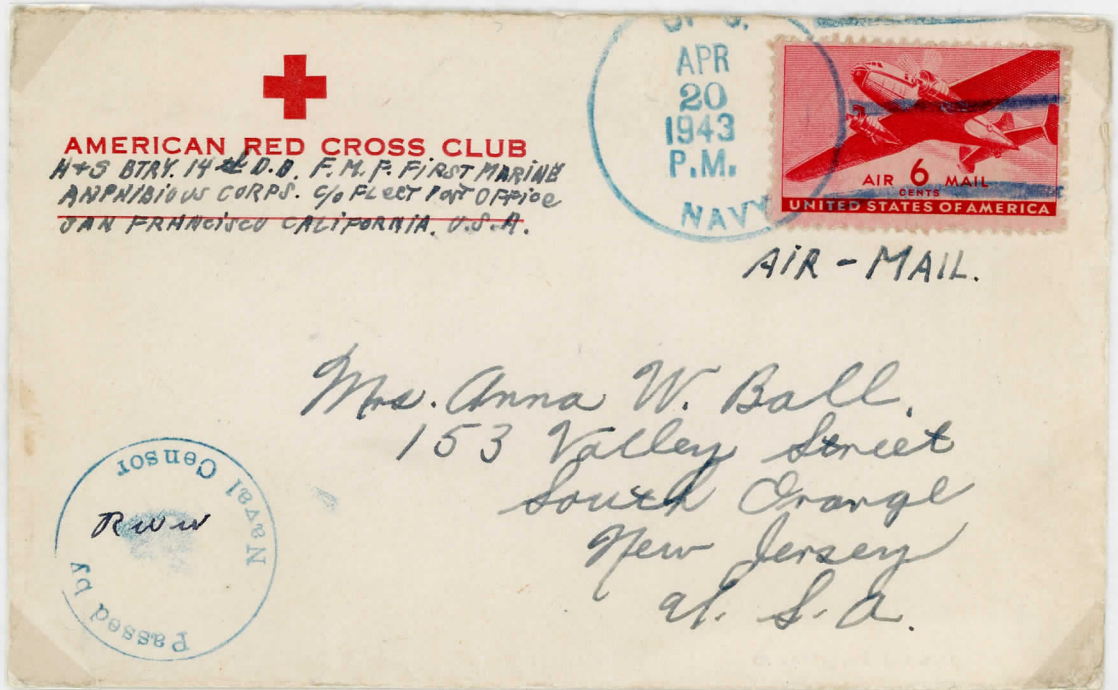 AMERICAN RED CROSS CLUB
H+S BTRY. 14th D.B. F.M.F. FIRST MARINE
AMPHIBIOUS CORPS. c/o FLEET POST OFFICE
SAN FRANCISCO CALIFORNIA. U.S.A.
APR
20
1943
P.M.
NAVY
AIR 6 MAIL
CENTS
UNITED STATES OF AMERICA
AIR-MAIL.
Mrs. Anna W. Ball.
153 Valley Street
South Orange
New Jersey
U. S. A.
Passed by
Naval Censor
RWW